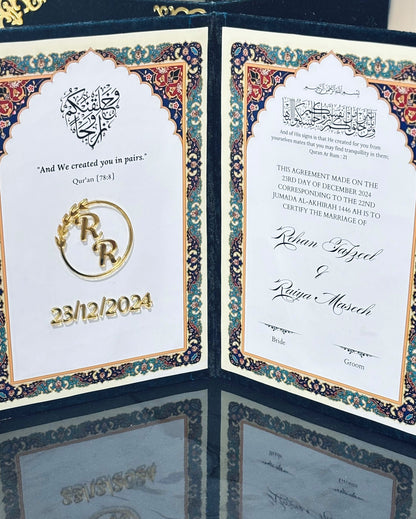 وخلقناكم
أزواجا
"And We created you in pairs."
Qur'an [78:8]
R
R
23/12/2024
And of His signs is that He created for you from
yourselves mates that you may find tranquility in them;
Quran Ar Rum : 21
THIS AGREEMENT MADE ON THE
23RD DAY OF DECEMBER 2024
CORRESPONDING TO THE 22ND
JUMADA AL-AKHIRAH 1446 AH IS TO
CERTIFY THE MARRIAGE OF
Rihan Fazeel
&
Raiqa Maseeh
Bride
Groom